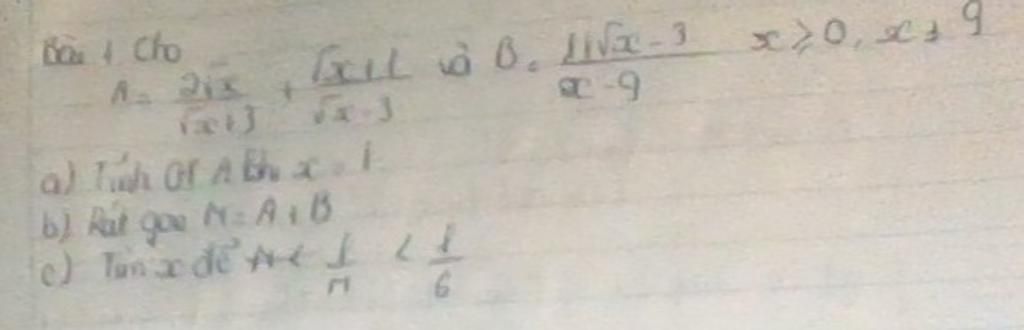 Bài 1 Cho
A = \frac{2\sqrt{x}}{\sqrt{x}+3} + \frac{\sqrt{x}+1}{\sqrt{x}-3} và B = \frac{11\sqrt{x}-3}{x-9} x ⩾ 0, x ≠ 9
a) Tính GT A khi x = 1
b) Rút gọn M = A + B
c) Tìm x để \frac{1}{M} < \frac{1}{6}